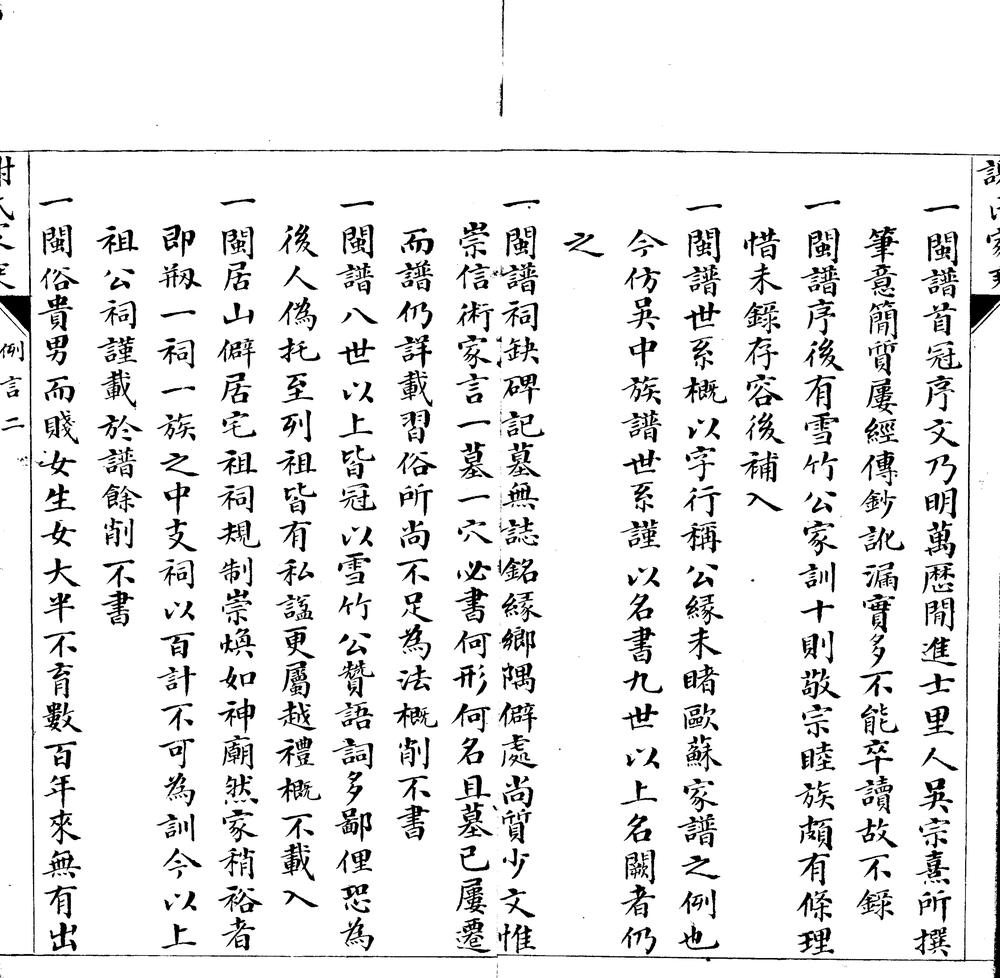 一閩譜首冠序文乃明萬厯閒進士里人吳宗熹所撰
筆意簡質屢經傳鈔訛漏實多不能卒讀故不錄
一閩譜序後有雪竹公家訓十則敬宗睦族頗有條理
惜未錄存容後補入
一閩譜世系概以字行稱公緣未睹歐蘇家譜之例也
今仿吳中族譜世系謹以名書九世以上名闕者仍
之
一閩譜祠缺碑記墓無誌銘緣鄉隅僻處尚質少文惟
崇信術家言一墓一穴必書何形何名且墓已屢遷
而譜仍詳載習俗所尚不足為法概削不書
一閩譜八世以上皆冠以雪竹公贊語詞多鄙俚恐為
後人偽托至列祖皆有私諡更屬越禮概不載入
一閩居山僻居宅祖祠規制崇煥如神廟然家稍裕者
即剏一祠一族之中支祠以百計不可為訓今以上
祖公祠謹載於譜餘削不書
一閩俗貴男而賤女生女大半不育數百年來無有出
例言二